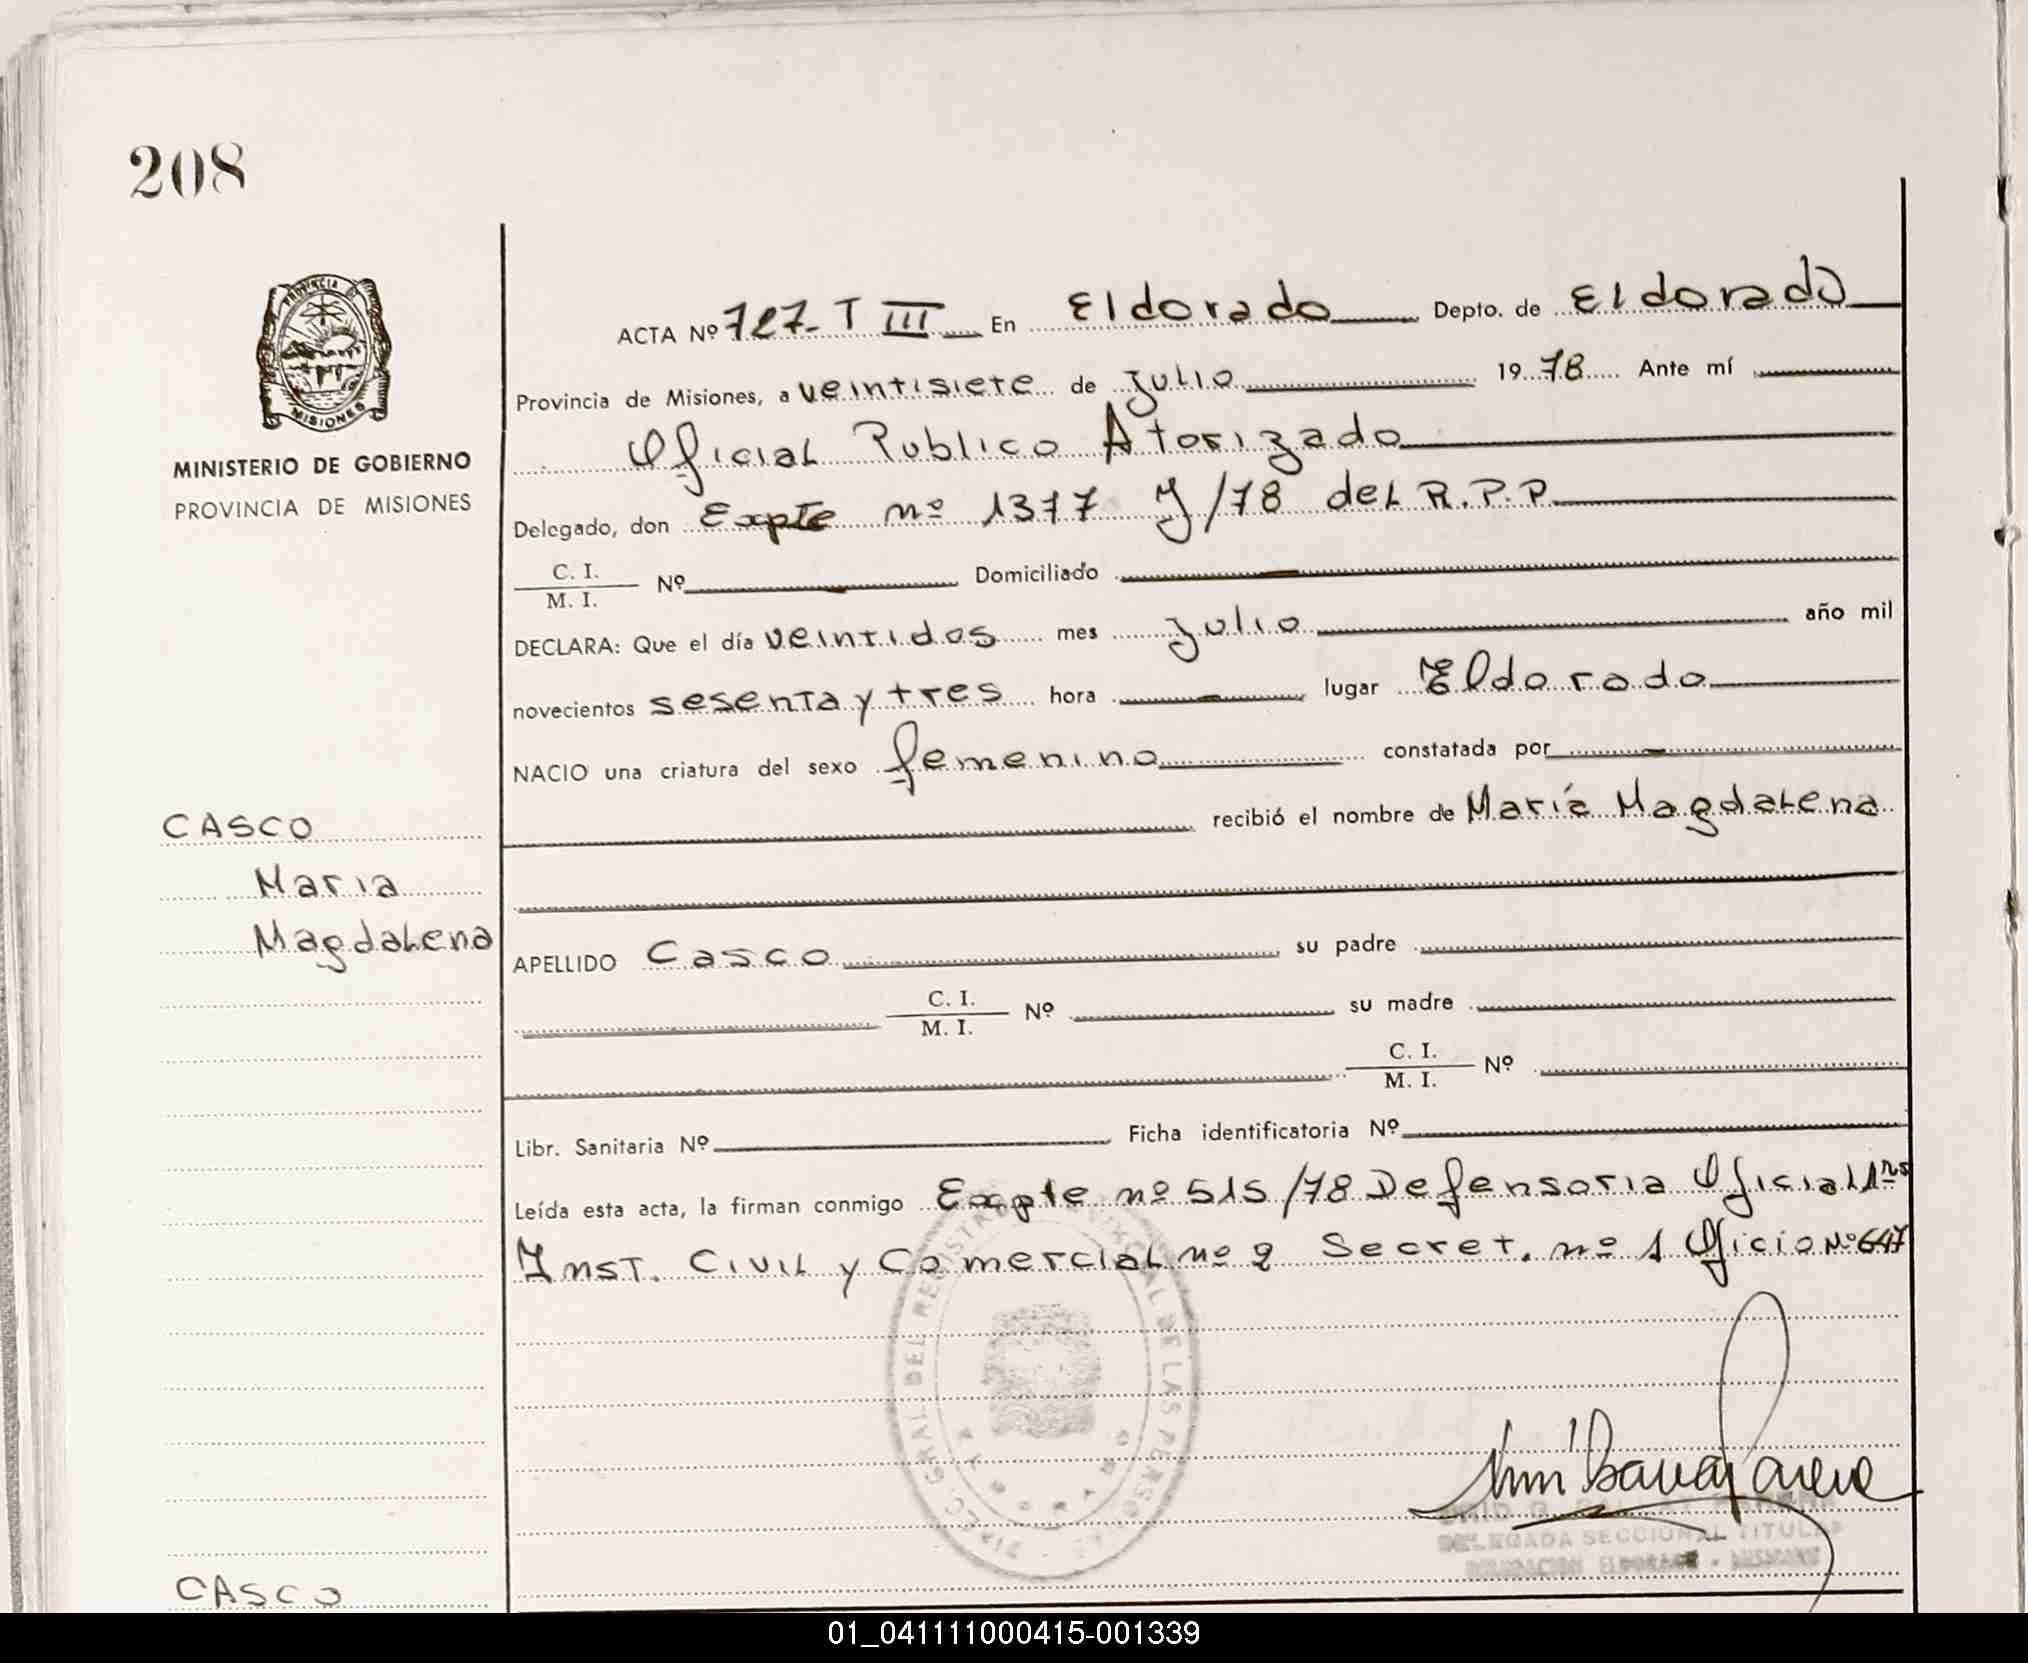 208
PROVINCIA DE
MISIONES
MINISTERIO DE GOBIERNO
PROVINCIA DE MISIONES
ACTA Nº 727- T III En Eldorado Depto. de Eldorado
Provincia de Misiones, a veintisiete de Julio 1978 Ante mí
Oficial Publico Atorizado
Delegado, don Expte nº 1377 J/78 del R.P.P.
C. I.
M. I. Nº Domiciliado
DECLARA: Que el día veintidos mes Julio año mil
novecientos sesenta y tres hora lugar Eldorado
NACIO una criatura del sexo femenino constatada por
CASCO
recibió el nombre de María Magdalena
Maria
Magdalena
APELLIDO Casco su padre
C. I.
M. I. Nº su madre
C. I.
M. I. Nº
Libr. Sanitaria Nº Ficha identificatoria Nº
Leída esta acta, la firman conmigo Expte nº 515/78 Defensoria Oficial 1ra
Inst. Civil y Comercial nº 2 Secret. nº 1 Oficio Nº 647
DIREC. GRAL DEL REGISTRO PROVINCIAL DE LAS PERSONAS
DELEGADA SECCIONAL TITULAR
DELEGACION ELDORADO - MISIONES
CASCO
01_041111000415-001339